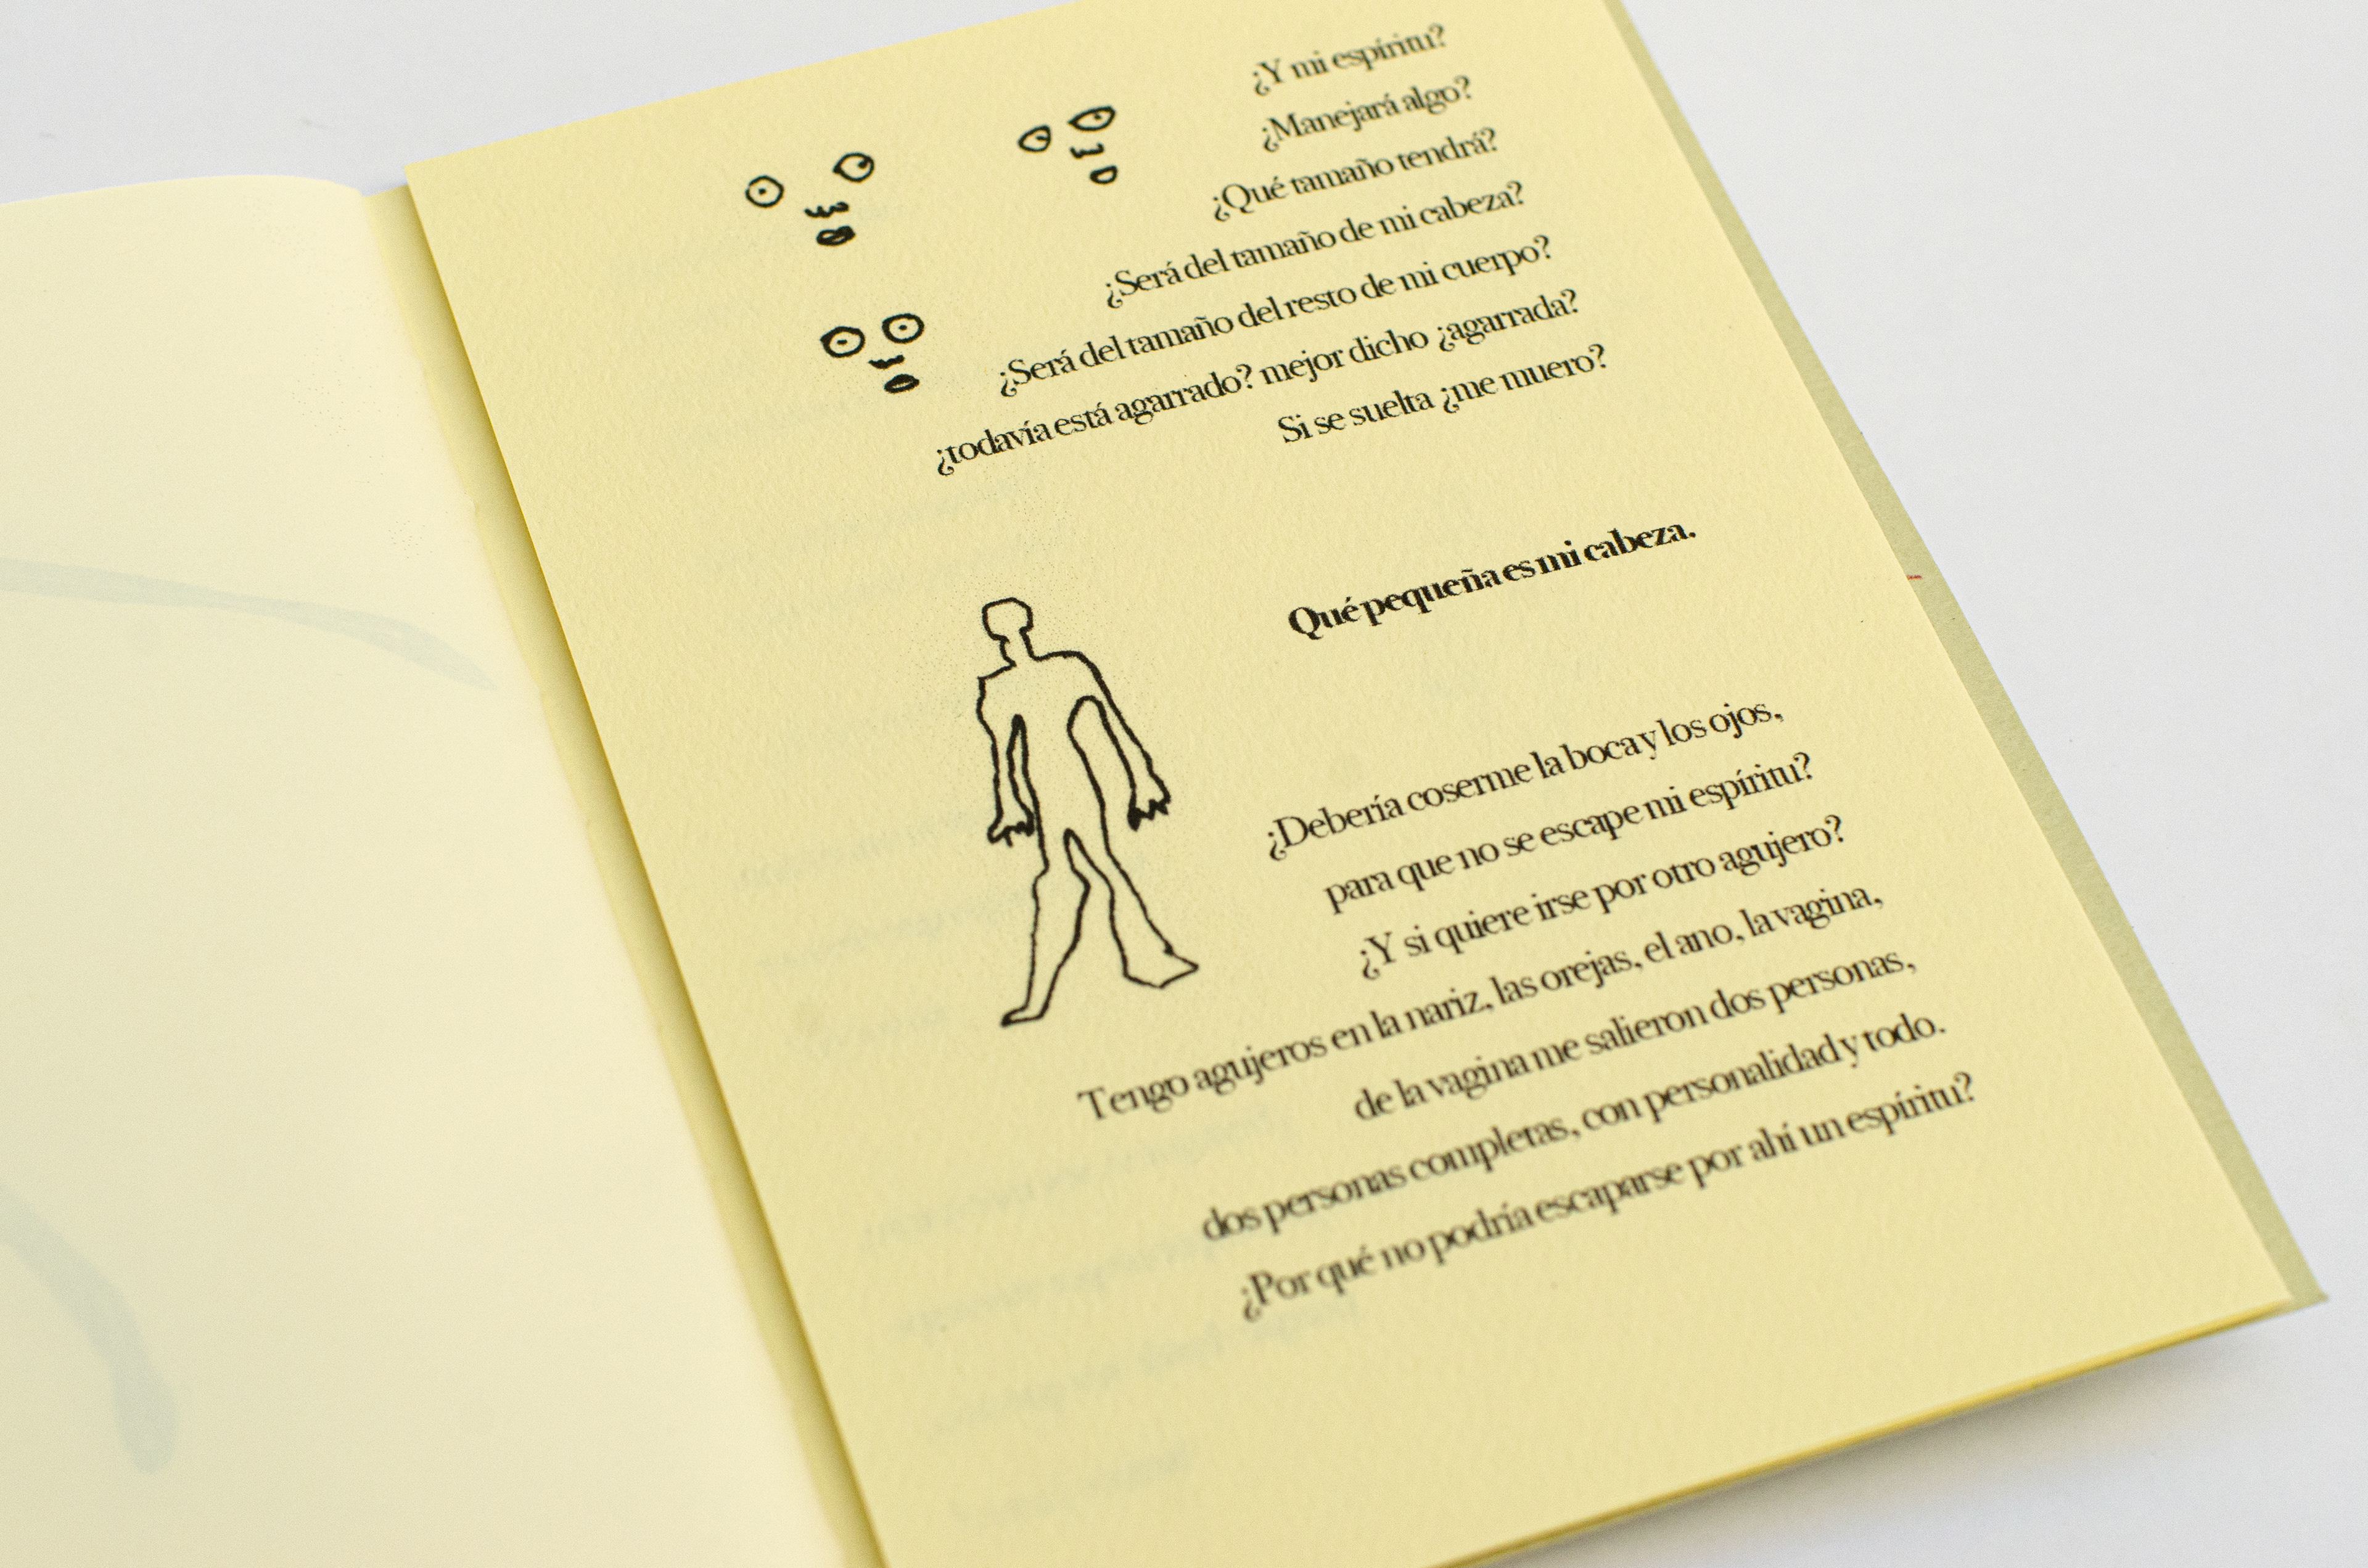 ¿Y mi espíritu?
¿Manejará algo?
¿Qué tamaño tendrá?
¿Será del tamaño de mi cabeza?
¿Será del tamaño del resto de mi cuerpo?
¿todavía está agarrado? mejor dicho ¿agarrada?
Si se suelta ¿me muero?
Qué pequeña es mi cabeza.
¿Debería coserme la boca y los ojos,
para que no se escape mi espíritu?
¿Y si quiere irse por otro agujero?
Tengo agujeros en la nariz, las orejas, el ano, la vagina,
de la vagina me salieron dos personas,
dos personas completas, con personalidad y todo.
¿Por qué no podría escaparse por ahí un espíritu?